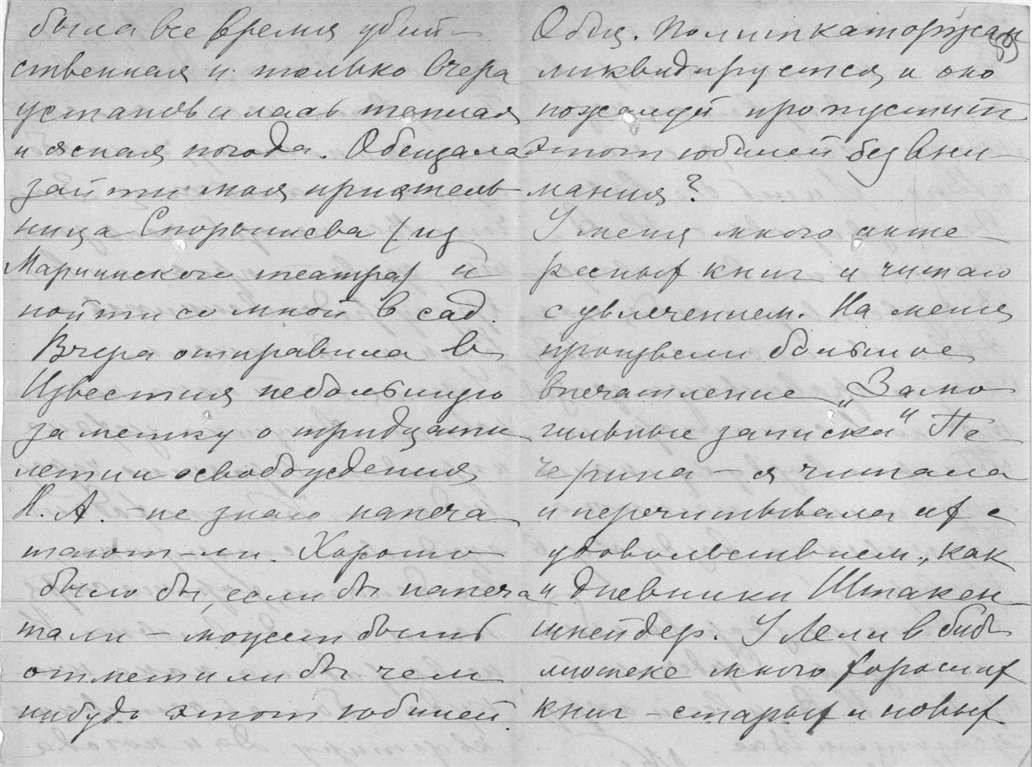 была все время убий-
ственная и только вчера
установилась теплая
и ясная погода. Обещала
зайти моя приятель-
ница Спорышева (из
Мариинского театра) и
пойти со мной в сад.
Вчера отправила в
Известия небольшую
заметку о тридцати
летии освобождения
Н. А. – не знаю напеча
тают-ли. Хорошо
было бы, если бы напеча
тали – может быть
отметили бы чем
нибудь этот юбилей.
89
Общ. Политкаторжан
ликвидируется и оно
пожалуй пропустит
этот юбилей без вни-
мания?
У меня много инте-
ресных книг и читаю
с увлечением. На меня
произвели большое
впечатление „Замо
гильные записки“ Пе-
черина – я читала
и перечитывала их с
удовольствием, как
и дневники Штакен-
шнейдер. У Лели в биб
лиотеке много хороших
книг – старых и новых